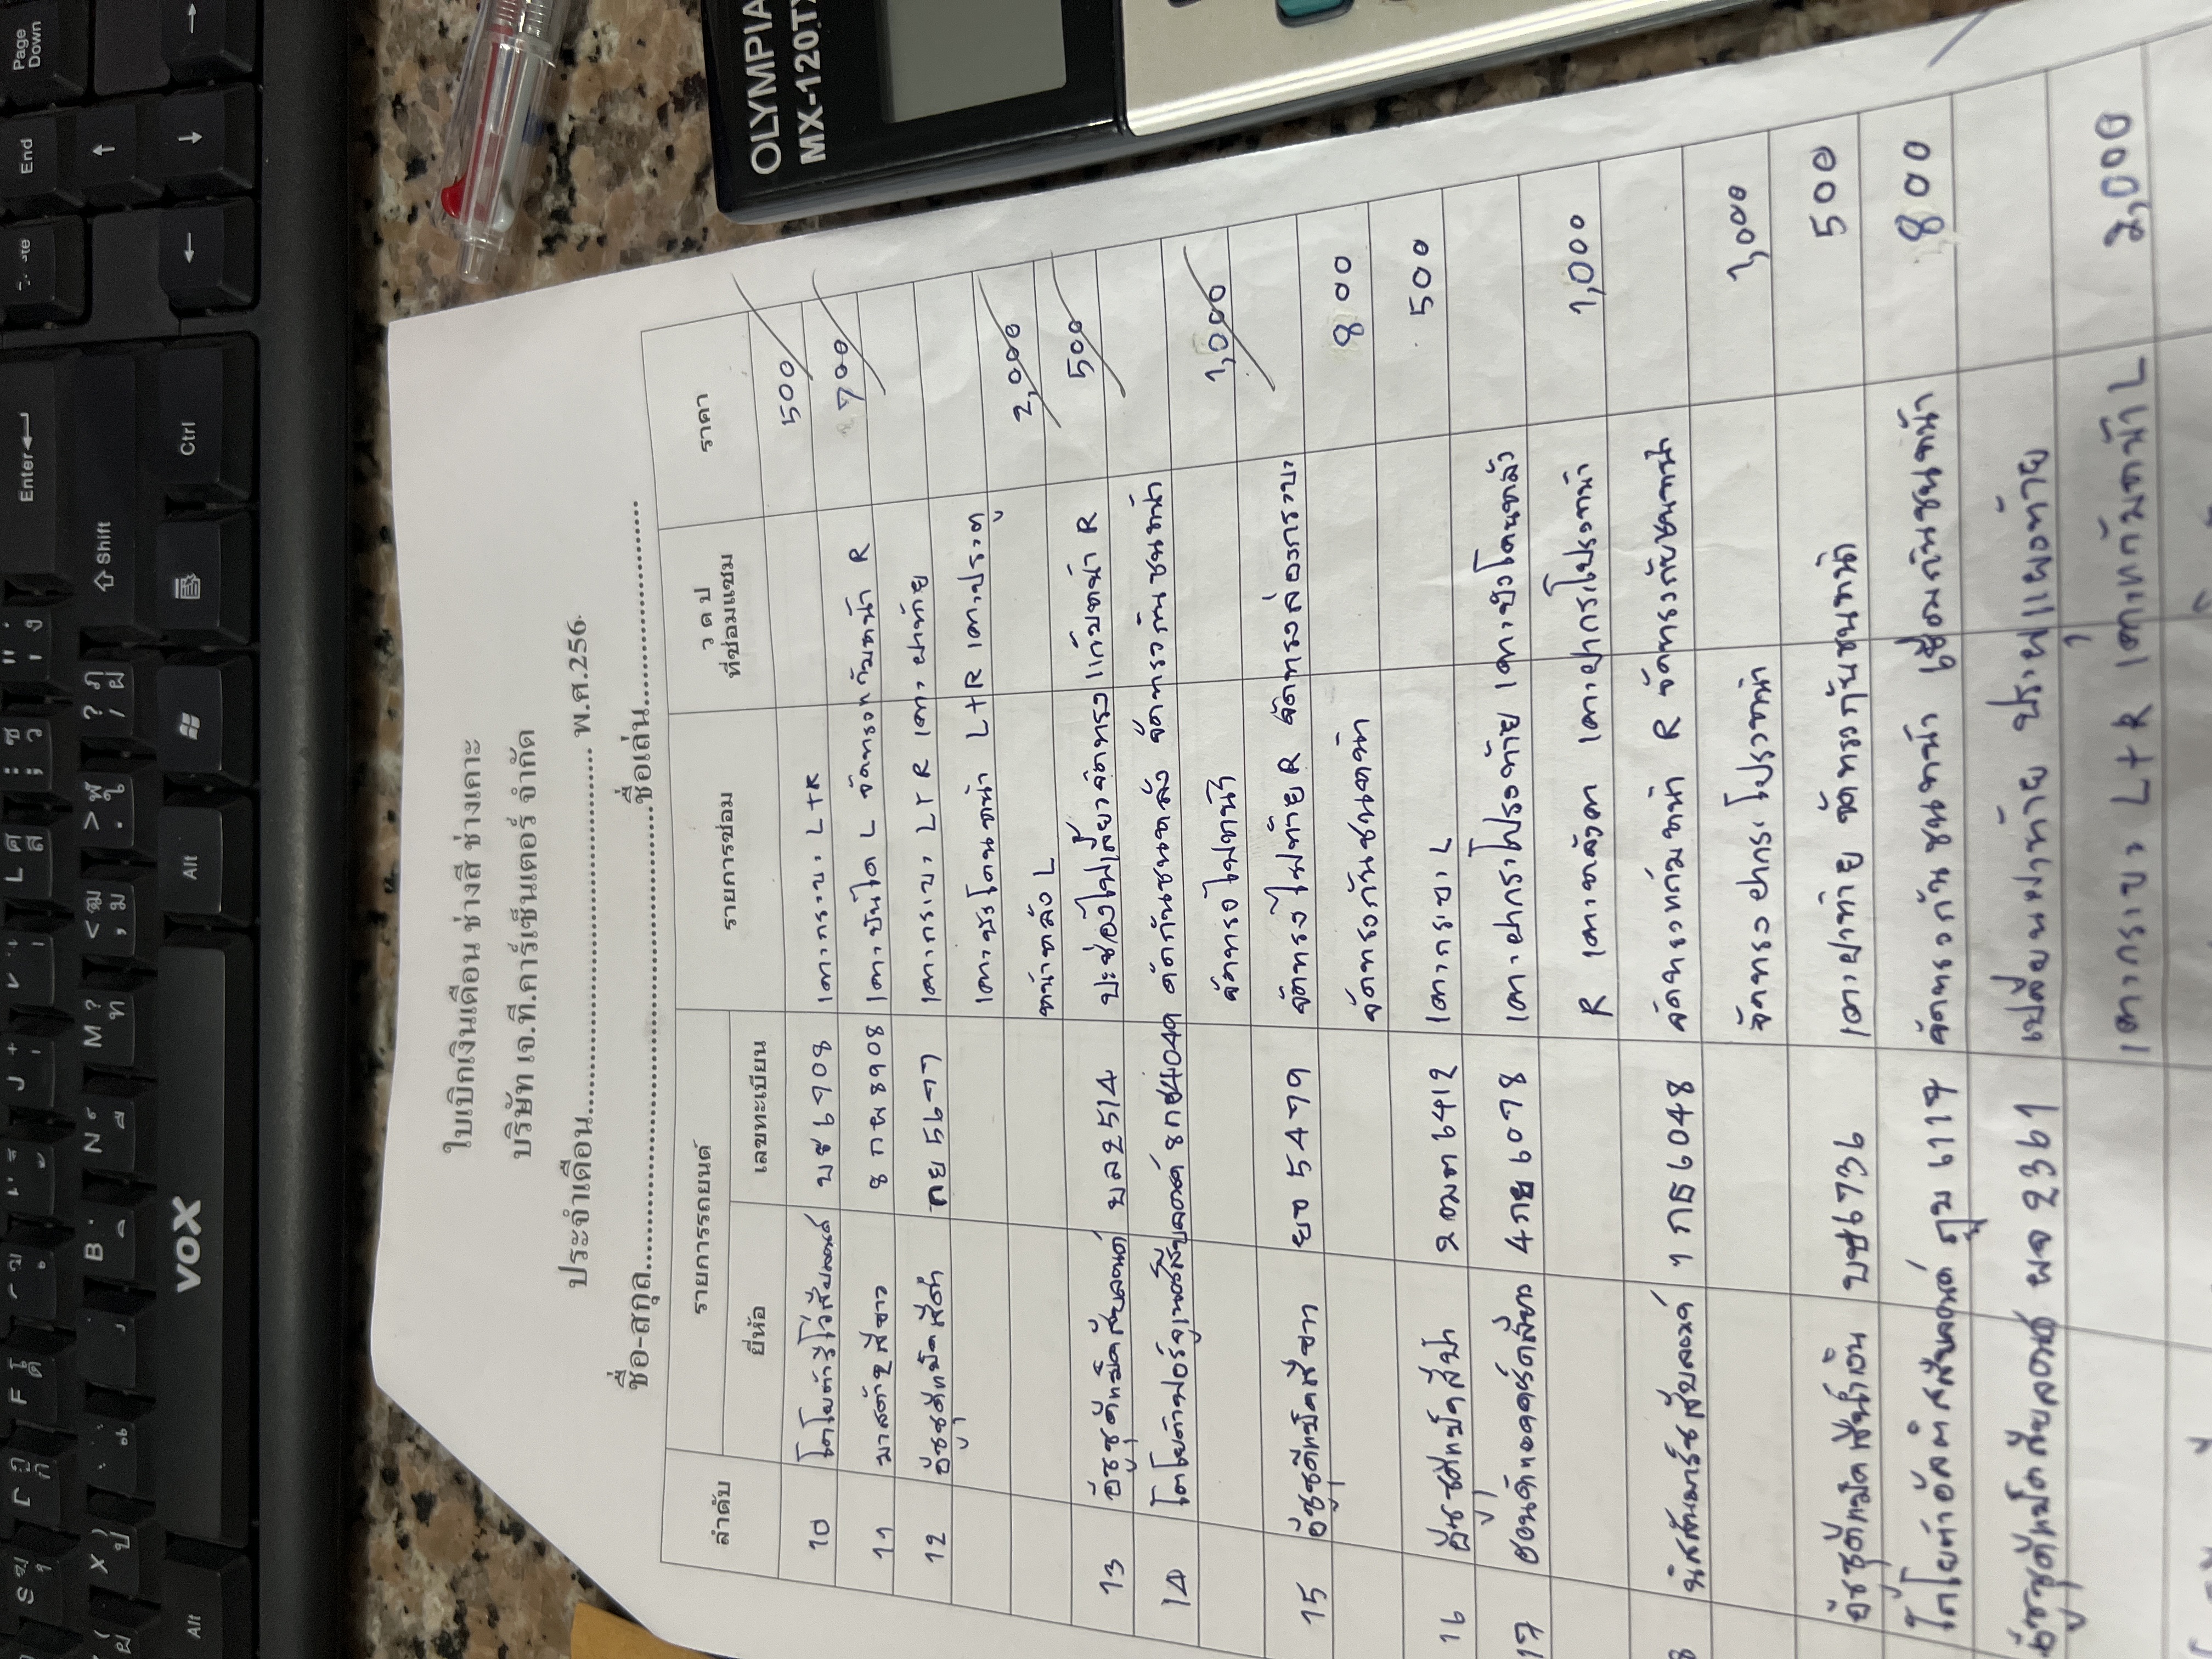 ใบเบิกเงินเดือน ช่างสี ช่างเคาะ
บริษัท เจ.ที.คาร์เซ็นเตอร์ จำกัด
ประจำเดือน........................................ พ.ศ.256.
ชื่อ-สกุล........................................ชื่อเล่น........................
ลำดับ รายการรถยนต์ รายการซ่อม ว ด ป ที่ซ่อมแซม ราคา
ยี่ห้อ เลขทะเบียน
10 โตโยต้ารีโว่สีบลอนด์ บช 6908 เคาะกระบะ L+R 500
11 มาสด้า2สีขาว 8 กผ 8908 เคาะบันได L จัดทรงกันชนหน้า R 700
12 อีซูซุดีแม็คสีดำ กย 5677 เคาะกระบะ L+R เคาะฝาท้าย
เคาะบังโคลนหน้า L+R เคาะประตู
หน้าหลัง L 2,000
13 อีซูซุดีแม็คสีบลอนด์ บล 2514 ปะช่องไฟเลี้ยวจัดทรงแก้มหน้า R 500
14 โตโยต้าฟอร์จูนเนอร์สีบลอนด์ ตัดกันชนหลัง จัดทรงกันชนหน้า
จัดทรงไฟหน้า 1,000
15 อีซูซุดีแม็คสีขาว ยจ 5479 จัดทรงไฟท้าย R จัดทรงล่องกระบะ
จัดทรงกันชนหน้า 800
16 อีซูซุดีแม็คสีฟ้า 2ฒฒ 6412 เคาะกระบะ L 500
17 ฮอนด้าแอคคอร์ดสีขาว 4กย 6078 เคาะฝากระโปรงท้าย เคาะบังโคลนหลัง
R เคาะหลังคา เคาะฝากระโปรงหน้า 1,000
8 นิสสันมาร์ชสีบลอนด์ 1 กธ 6048 จัดทรงแก้มหน้า R จัดทรงกันชนหน้า
จัดทรงฝากระโปรงหน้า 1,000
อีซูซุดีแม็คสีน้ำเงิน บช 6736 เคาะฝาท้าย จัดทรงกันชนหน้า 500
โตโยต้าอัลติสสีบลอนด์ ภูม 6117 จัดทรงกันชนหน้า เชื่อมกันชนหน้า 800
อีซูซุดีแม็คสีบลอนด์ ผจ 2361 เปลี่ยนฝาท้าย ประกบแผงท้าย
เคาะกระบะ L+R เคาะแก้มหน้า L 2,000
OLYMPIA
MX-120TX
VOX
Page Down
End
Enter
Shift
Ctrl
Alt
Alt